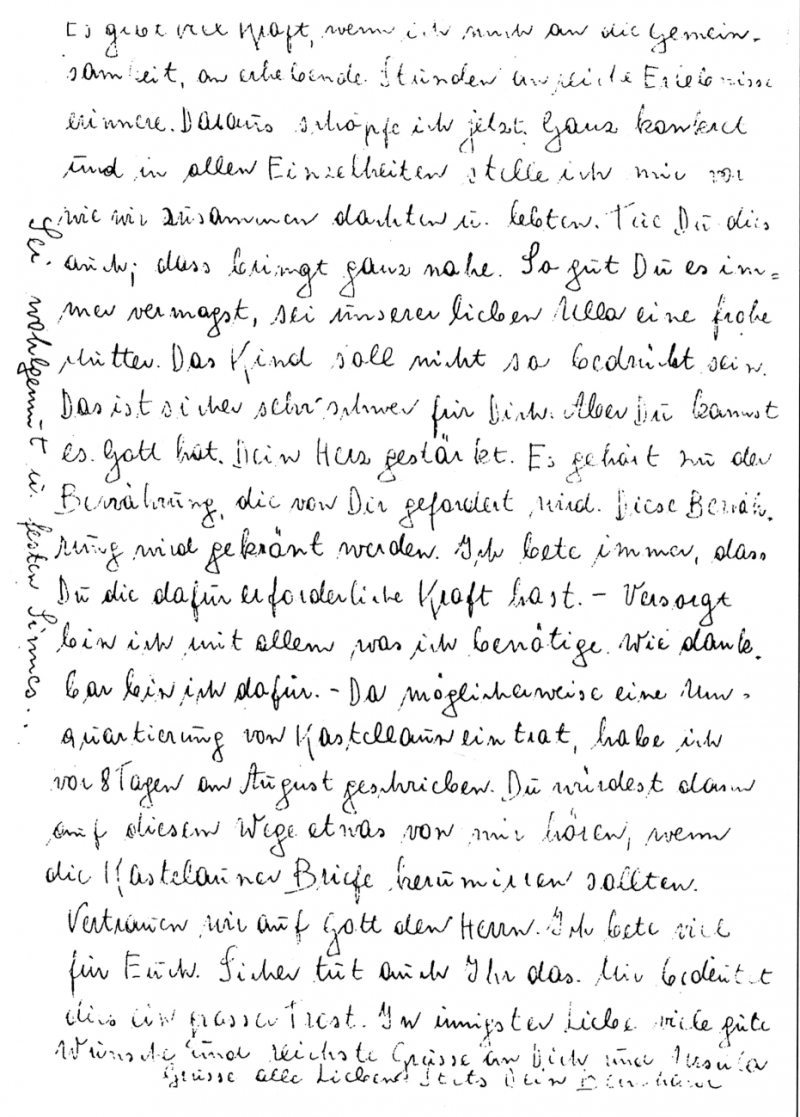 Es gibt viel Kraft, wenn ich mich an die Gemein-
samkeit, an erhebende Stunden an reiche Erlebnisse
erinnere. Daraus schöpfe ich jetzt. Ganz konkret
und in allen Einzelheiten stelle ich mir vor
wie wir zusammen dachten u. lebten. Tue Du dies
auch; dass bringt ganz nahe. So gut Du es im=
mer vermagst, sei unserer lieben Ulla eine frohe
Mutter. Das Kind soll nicht so bedrückt sein.
Das ist sicher sehr schwer für Dich. Aber Du kannst
es. Gott hat. Dein Herz gestärkt. Es gehört zu der
Bewährung, die von Dir gefordert wird. Diese Bewäh-
rung wird gekrönt werden. Ich bete immer, dass
Du die dafür erforderliche Kraft hast. – Versorgt
bin ich mit allem was ich benötige. Wie dank-
bar bin ich dafür. – Da möglicherweise eine Um-
quartierung von Kastellaun eintrat, habe ich
vor 8 Tagen an August geschrieben. Du würdest dann
auf diesem Wege etwas von mir hören, wenn
die Kastelauner Briefe herumirren sollten.
Vertrauen wir auf Gott den Herrn. Ich bete viel
für Euch. Sicher tut auch Ihr das. Mir bedeutet
dies ein grosser Trost. In innigster Liebe viele gute
Wünsche und reichste Grüsse an Dich und Ursula
Grüsse alle Lieben Stets Dein
Sei wohlgemut u. festen Sinnes..